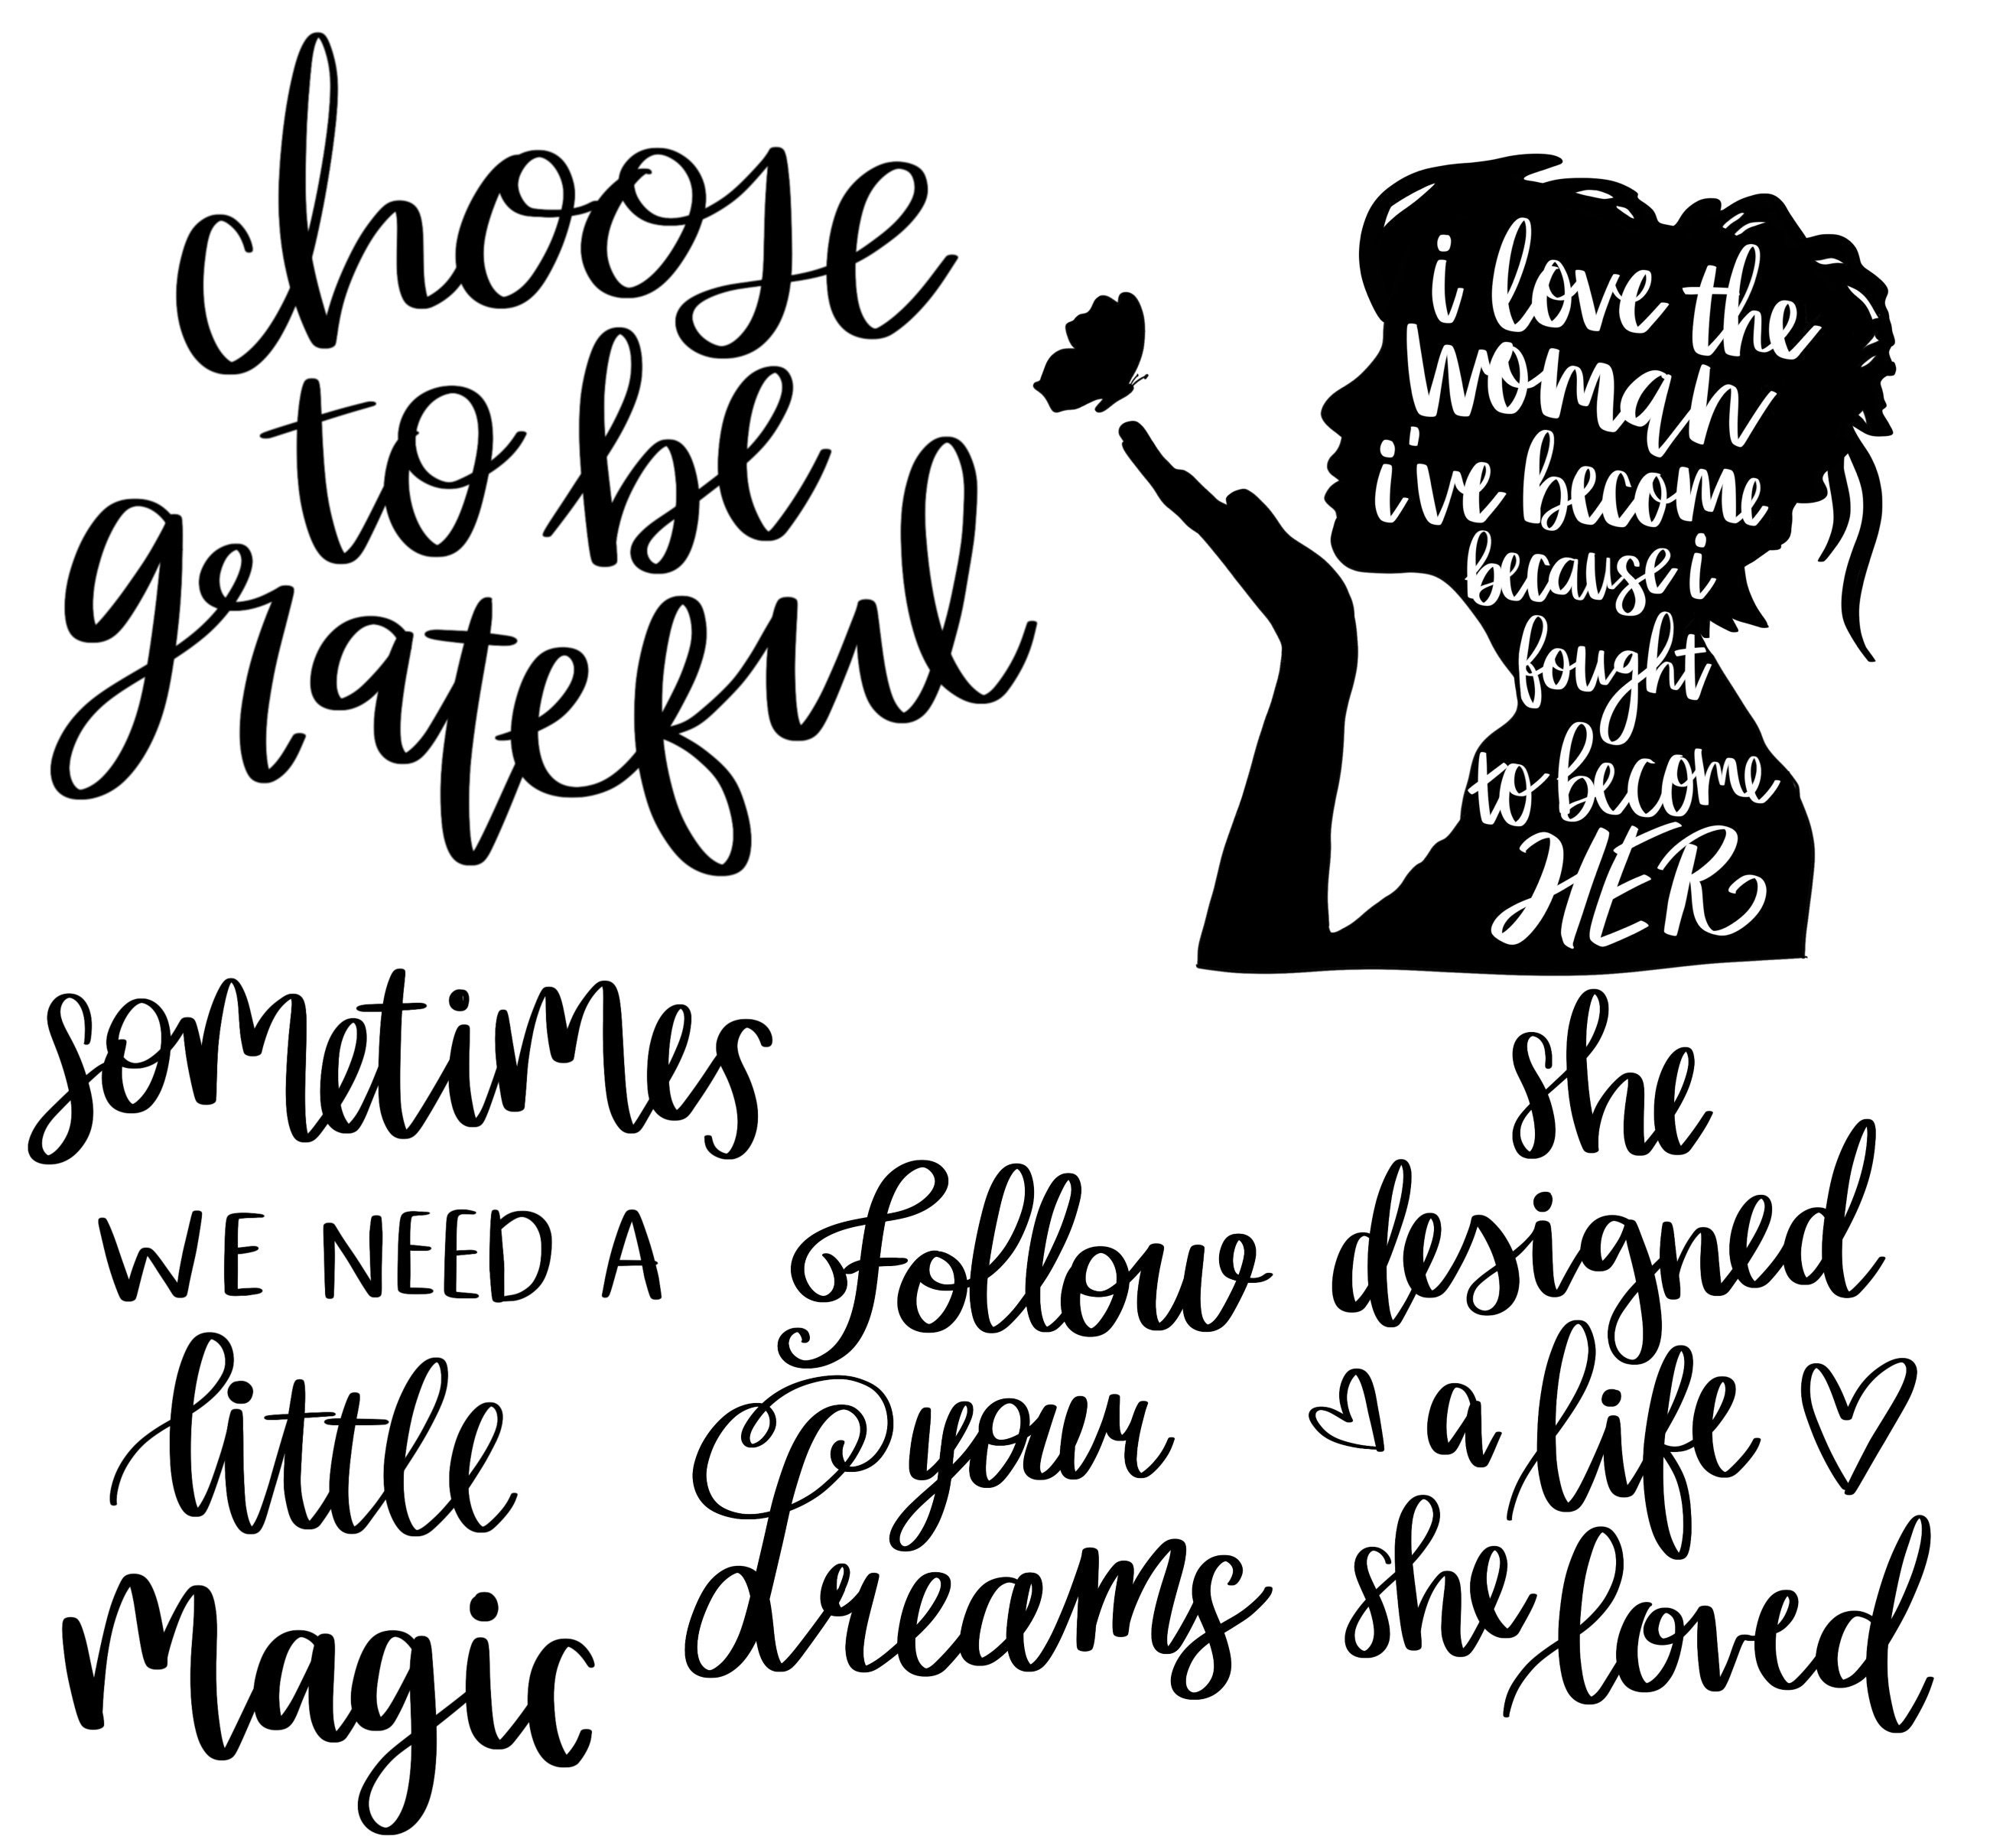 choose
to be
grateful
i love the
woman
i've become
because i
fought
to become
HER
sometimes
WE NEED A
little
magic
follow
your
dreams
she
designed
a life
she loved